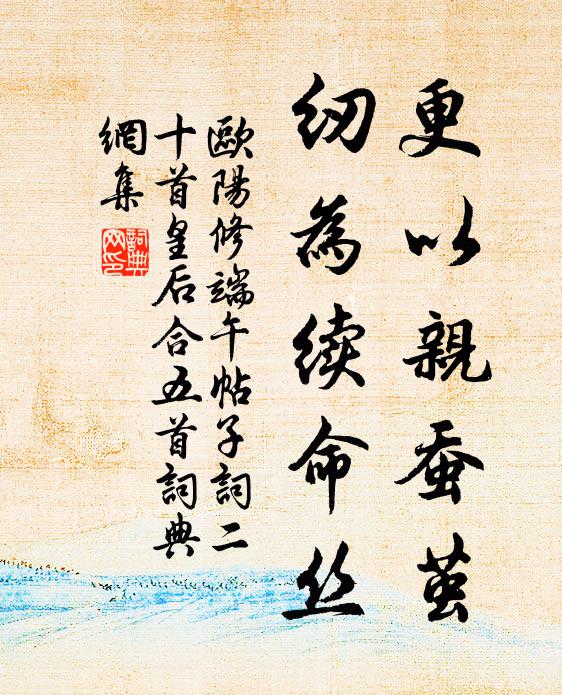 更以親蚕茧
纫為續命丝
歐陽修端午帖子詞二
十首皇后合五首詞典
網集
詞典網印